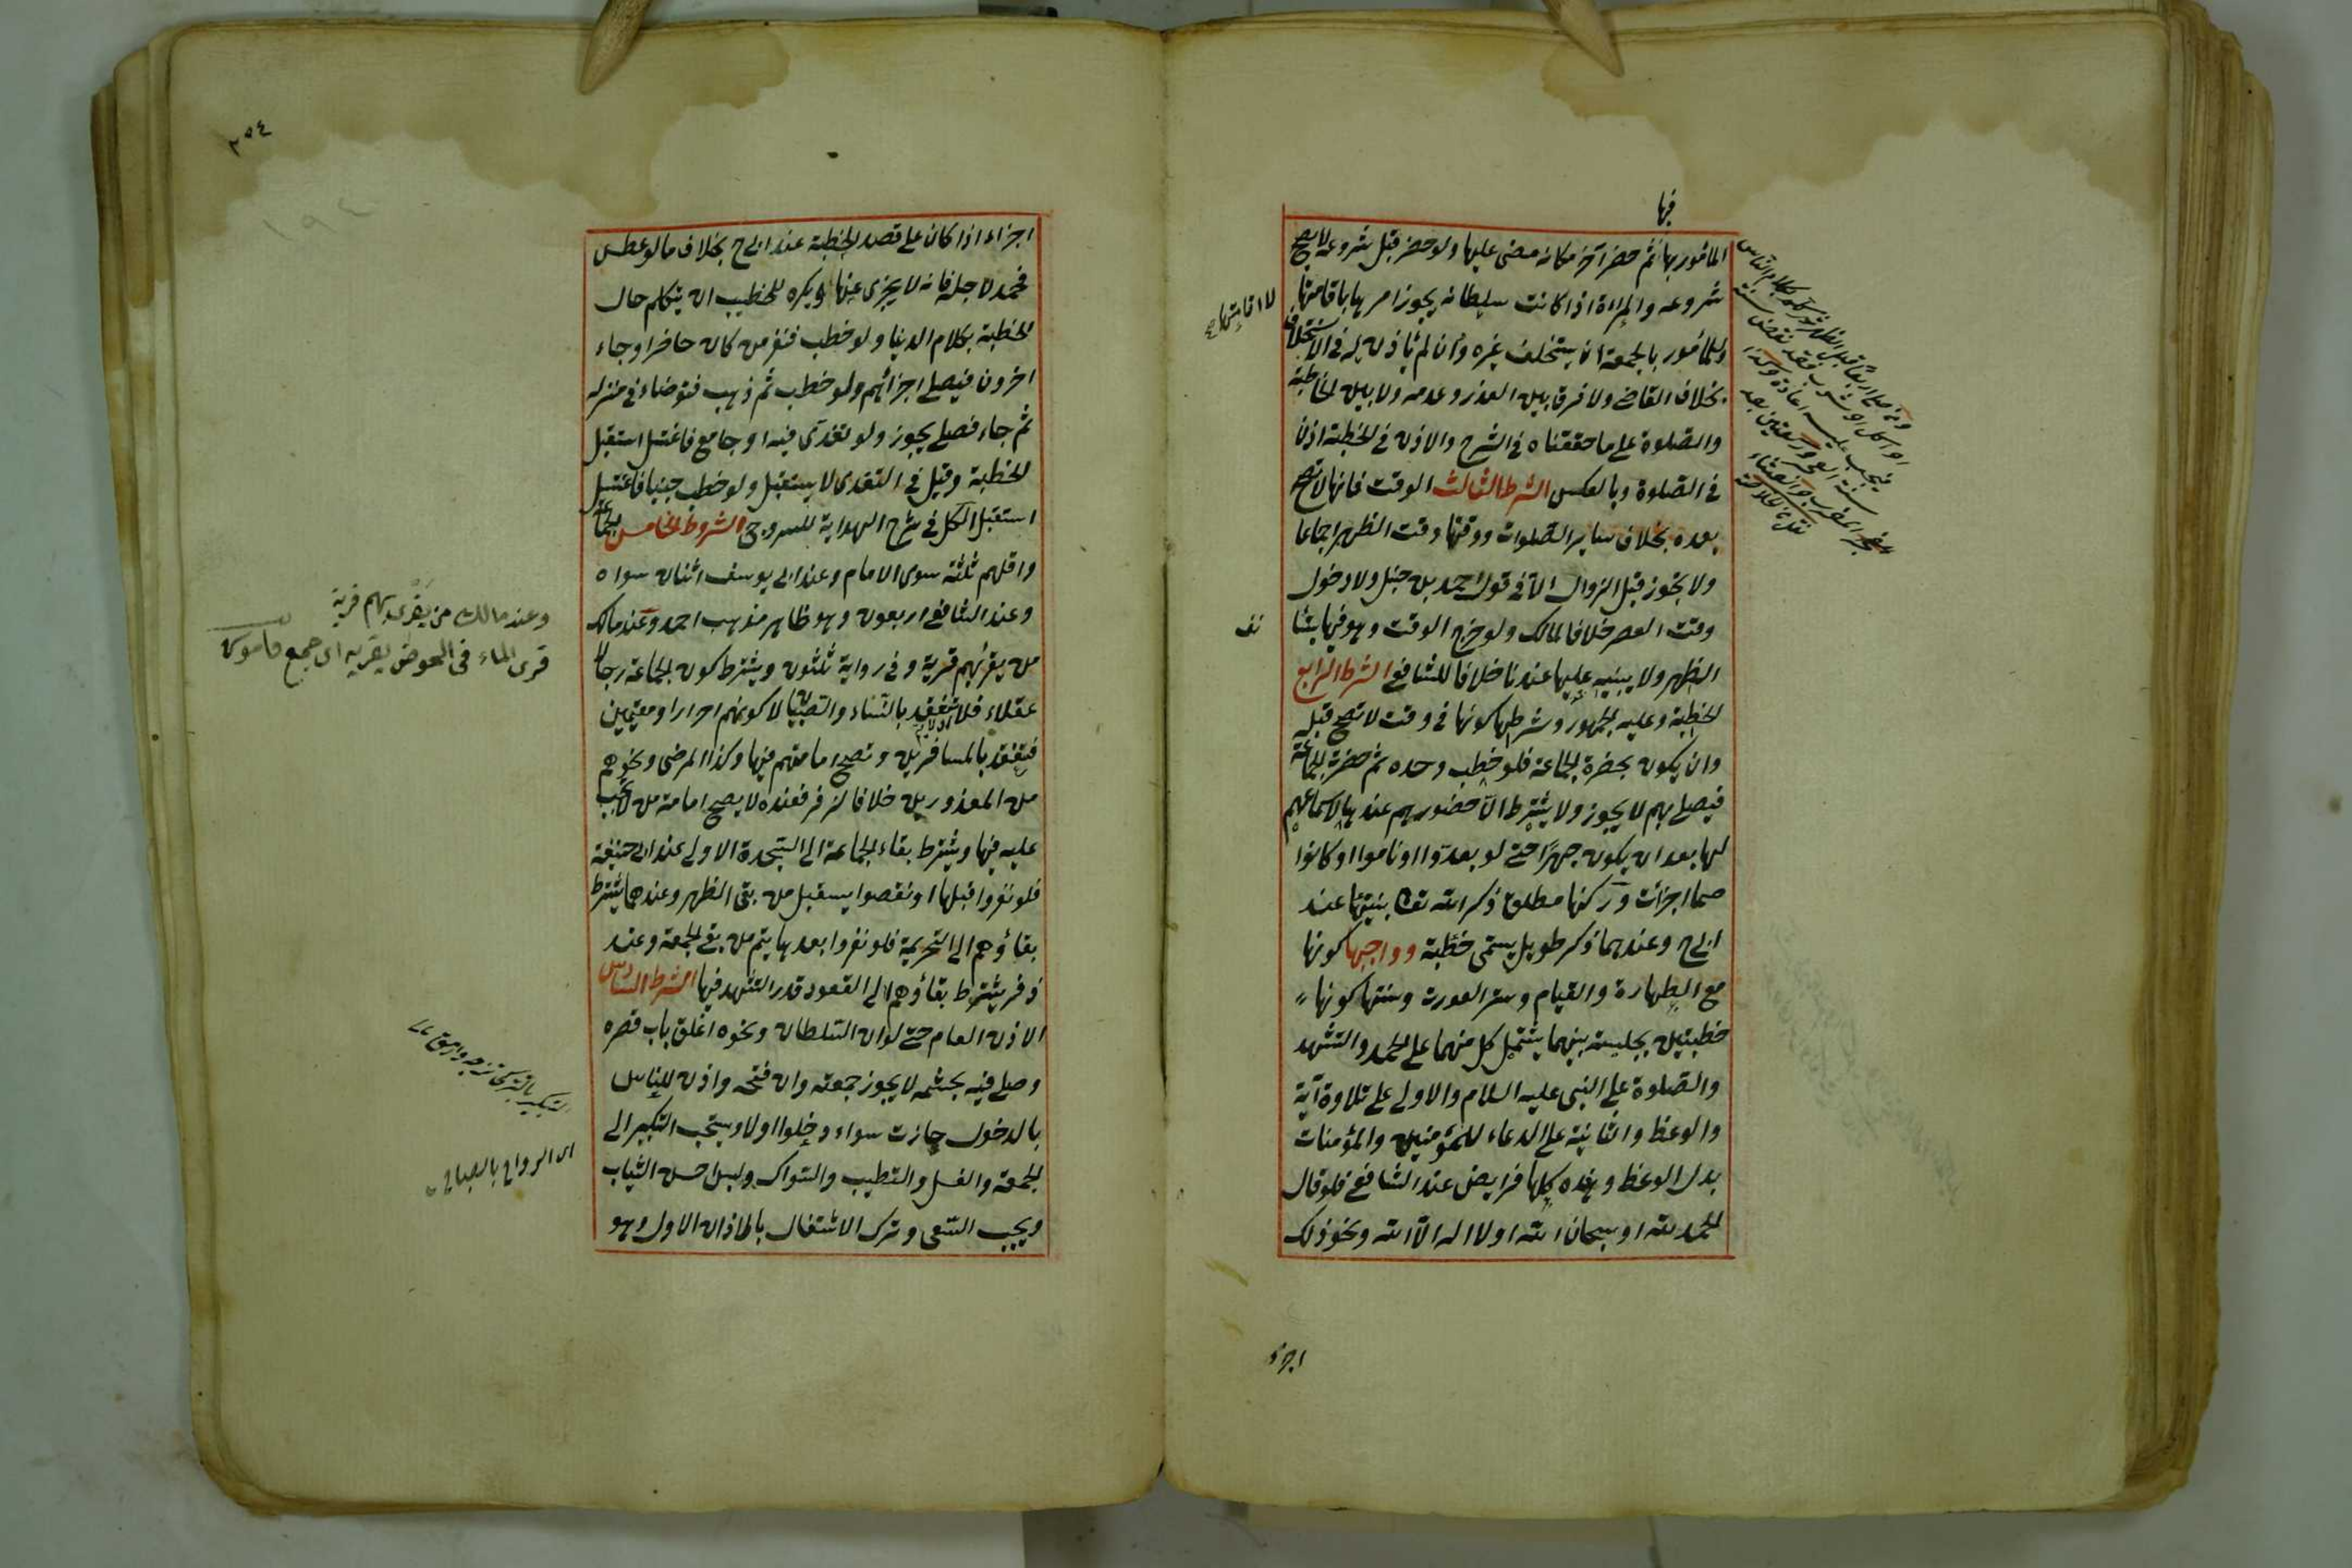 فيها
المأمور بها ثم حضر آخر مكانه مضى عليها ولو حضر قبل شروعه لا يصح
شروعه والمراة اذا كانت سلطانه يجوز امرها باقامتها
لا اقامتها
وللمأمور بالجمعة ان يستخلف غيره وان لم يأذن له في الاستخلاف
بخلاف القاضي ولا فرق بين العذر وعدمه ولا بين الخطبة
والصلوة على ما حققناه في الشرح والاذن في الخطبة اذن
في الصلوة وبالعكس الشرط الثالث الوقت فانها لا تصح
بعده بخلاف سائر الصلوات ووقتها وقت الظهر اجماعا
ولا يجوز قبل الزوال الا في قول احمد بن حنبل ولا دخول
وقت العصر خلافا لمالك ولو خرج الوقت وهو فيها يستأنف
الظهر ولا يبنيه عليها عندنا خلافا للشافعي الشرط الرابع
الخطبة وعليه الجمهور وشرطها كونها في وقت لا تصح قبله
وان يكون بحضرة الجماعة فلو خطب وحده ثم حضرة الجماعة
فيصلي بهم لا يجوز ولا يشترط الا حضورهم عندها لا سماعهم
لها بعد ان يكون جهرا حتى لو بعدوا او ناموا او كانوا
صما اجزأت وركنها مطلق ذكر الله تعا بنيتها عند
ابى ح وعندهما ذكر طويل يسمى خطبة وواجبها كونها
مع الطهارة والقيام وستر العورت وسنتها كونها
خطبتين بجلسة بينهما يشتمل كل منهما على الحمد والتشهد
والصلوة على النبي عليه السلام والاولى على تلاوة آية
والوعظ والثانية على الدعاء للمؤمنين والمؤمنات
بدل الوعظ وهذه كلها فرايض عند الشافعي فلو قال
الحمد لله او سبحان الله او لا اله الا الله ونحو ذلك
اجزء
٢٥٤
اجزاء اذا كان على قصد الخطبة عند ابى ح بخلاف ما لو عطس
فحمد لاجله فانه لا يجزى عنها ويكره للخطيب ان يتكلم حال
الخطبة بكلام الدنيا ولو خطب فنفر من كان حاضرا وجاء
اخرون فيصلي اجزائهم ولو خطب ثم ذهب فتوضاء في منزله
ثم جاء فصلى يجوز ولو تغدى فيه او جامع فاغتسل استقبل
الخطبة وقيل في التغدى لا يستقبل ولو خطب جنبا فاغتسل
استقبل الكل في شرح الهداية للسروجى الشروط الخامس الجماعة
واقلهم ثلثة سوى الامام وعند ابى يوسف اثنان سواه
وعند الشافعي اربعون وهو ظاهر مذهب احمد وعند مالك
من يقرئهم قرية وفي رواية ثلثون ويشترط كون الجماعة رجالا
عقلاء فلا تنعقد بالنساء والصبيان لا كونهم احرارا ومقيمين
فتنعقد بالمسافرين وتصح امامتهم فيها وكذا المرضى ونحوهم
من المعذورين خلافا لزفر فعنده لا يصح امامة من لا تجب
عليه فيها ويشترط بقاء الجماعة الى السجدة الاولى عند ابى حنيفة
فلو نفروا قبلها او نقصوا يستقبل من بقى الظهر وعندهما يشترط
بقاؤهم الى التحريمة فلو نفروا بعدها يتم من بقى الجمعة وعند
زفر يشترط بقاؤهم الى القعود قدر التشهد فيها الشرط السادس
الاذن العام حتى لو ان السلطان ونحوه اغلق باب قصره
وصلى فيه بحشمه لا يجوز جمعته وان فتحه واذن للناس
بالدخول جازت سواء دخلوا اولا ويستحب التبكير الى
الجمعة والغسل والتطيب والسواك ولبس احسن الثياب
ويجب السعى وترك الاشتغال بالاذان الاول وهو
وعند مالك من يقرى بهم قرية
قرى الماء فى الحوض يقريه اى جمع قاموس